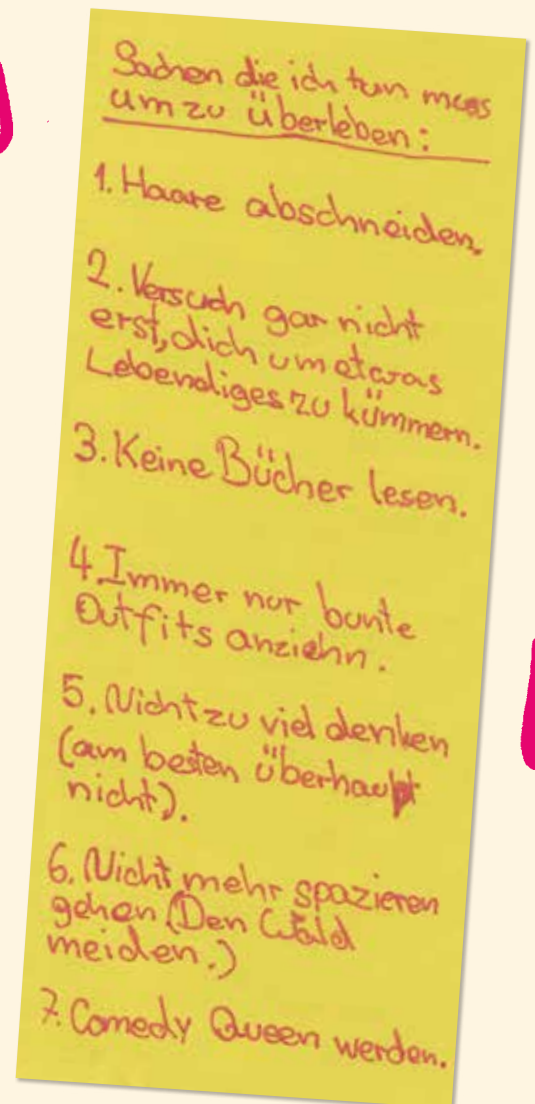 Sachen die ich tun muss
um zu überleben:
1. Haare abschneiden.
2. Versuch gar nicht
erst, dich um etwas
Lebendiges zu kümmern.
3. Keine Bücher lesen.
4. Immer nur bunte
Outfits anziehn.
5. Nicht zu viel denken
(am besten überhaupt
nicht).
6. Nicht mehr spazieren
gehen (Den Wald
meiden.)
7. Comedy Queen werden.